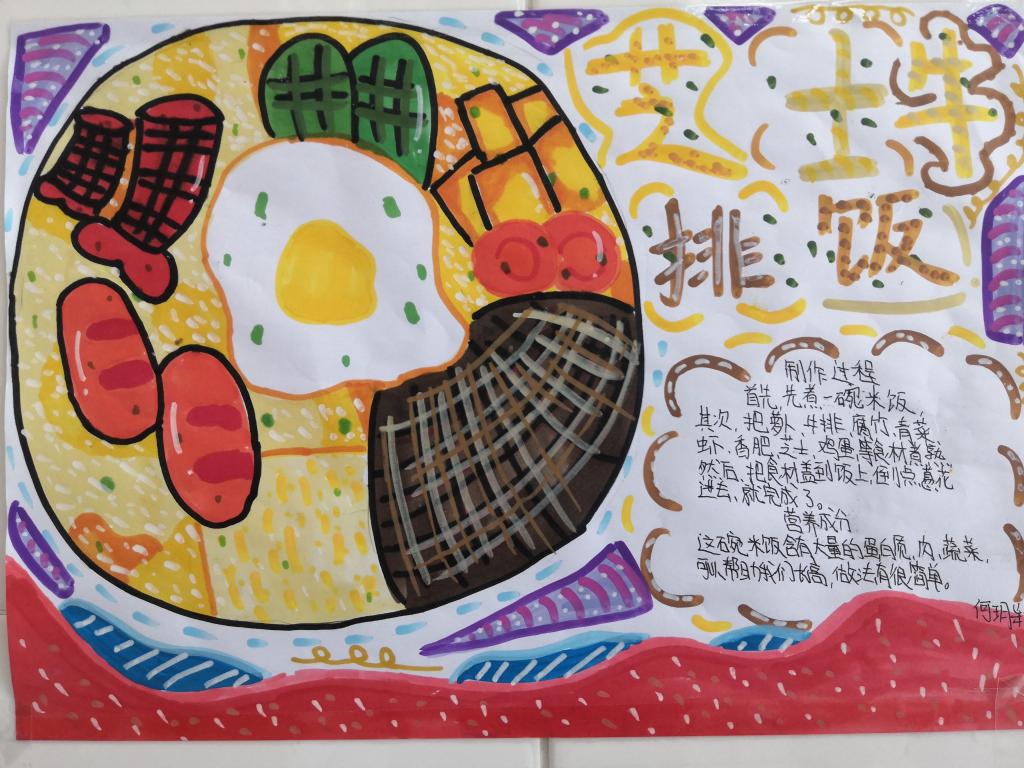 芝士牛
排饭
制作过程
首先,先煮一碗米饭,
其次,把萝卜,牛排,腐竹,青菜
虾,香肥,芝士,鸡蛋等食材煮熟
然后,把食材盖到饭上,倒小点葱花
进去,就完成了。
营养成分
这碗米饭含有大量的蛋白质,肉,蔬菜,
可以帮助我们长高,做法有很简单。
何玥